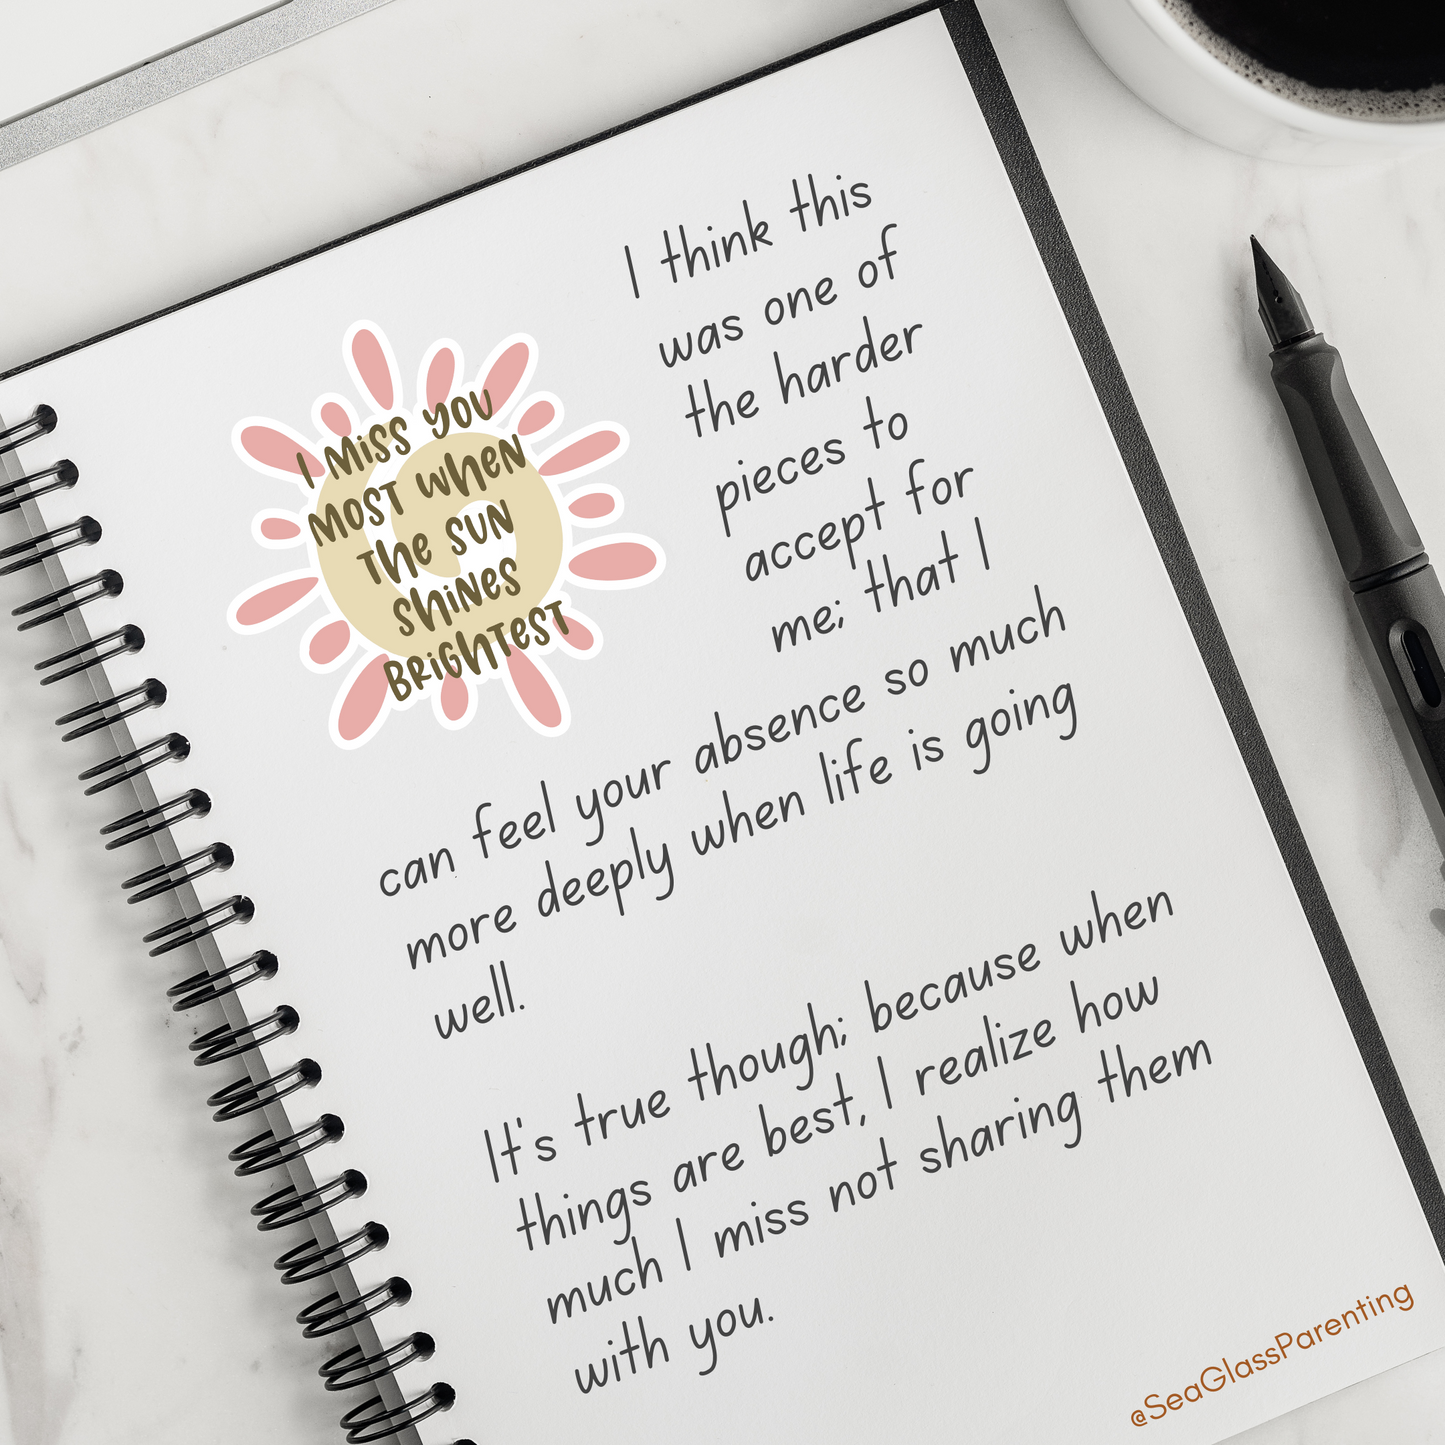 I MISS YOU
MOST WHEN
THE SUN
SHINES
BRIGHTEST
I think this
was one of
the harder
pieces to
accept for
me; that I
can feel your absence so much
more deeply when life is going
well.
It's true though; because when
things are best, I realize how
much I miss not sharing them
with you.
@SeaGlassParenting